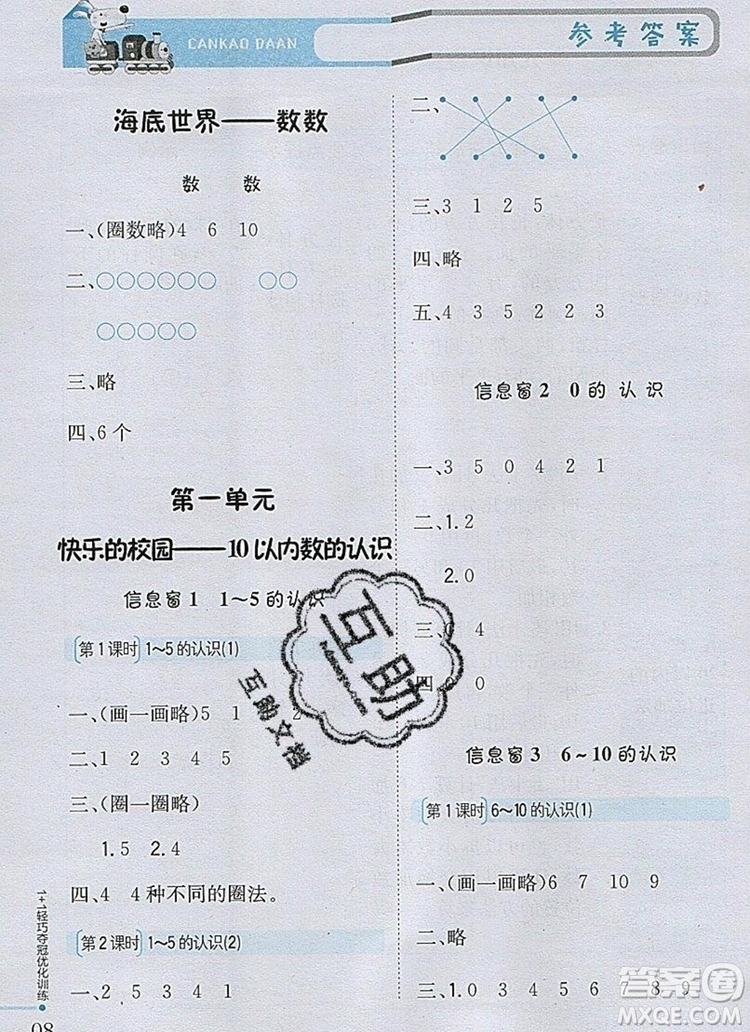 CANKAO DAAN
参考答案
海底世界——数数
数 数
一、(圈数略)4 6 10
二、○○○○○○ ○○
○○○○○
三、略
四、6个
第一单元
快乐的校园——10以内数的认识
信息窗1 1~5的认识
第1课时 1~5的认识(1)
一、(画一画略)5 1 2
二、1 2 3 4 5
三、(圈一圈略)
1.5 2.4
四、4 4种不同的圈法。
第2课时 1~5的认识(2)
一、2 5 3 4 1
二、
三、3 1 2 5
四、略
五、4 3 5 2 2 3
信息窗2 0的认识
一、3 5 0 4 2 1
二、1.2
2.0
三、0 4
四、0 0
信息窗3 6~10的认识
第1课时 6~10的认识(1)
一、(画一画略)6 7 10 9
二、略
三、1.0 3 4 5 6 7 8 9
1+1轻巧夺冠优化训练
98
互助
互助文档
答案圈
MXQE.COM